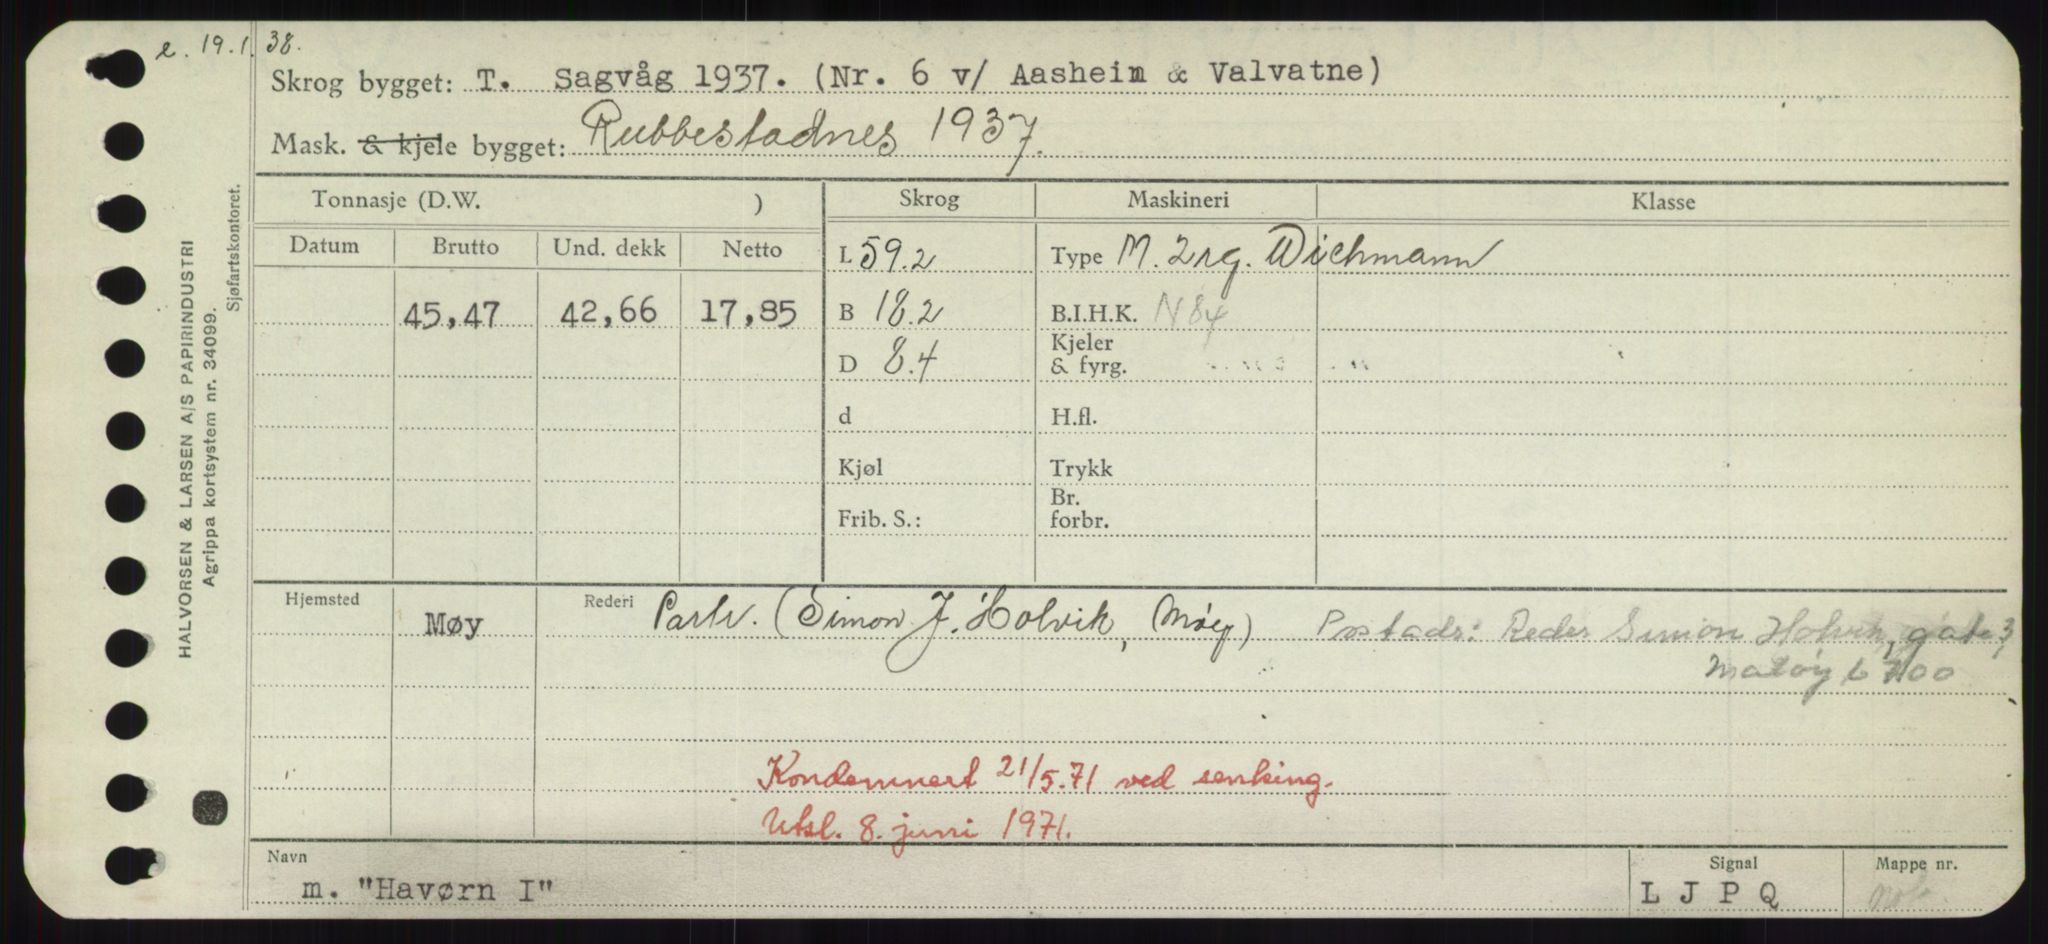 e. 19.1.38.
Skrog bygget: T. Sagvåg 1937. (Nr. 6 v/ Aasheim & Valvatne)
Mask. & kjele bygget: Rubbestadnes 1937.
HALVORSEN & LARSEN A/S PAPIRINDUSTRI
Agrippa kortsystem nr. 34099.
Sjøfartskontoret.
Tonnasje (D.W. ) Skrog Maskineri Klasse
Datum Brutto Und. dekk Netto
L 59.2 Type M. 2 rg. Wichmann
45,47 42,66 17,85 B 18.2 B.I.H.K. N 84
D 8.4 Kjeler & fyrg.
d H.fl.
Kjøl Trykk
Frib. S.: Br. forbr.
Hjemsted Møy Rederi Partr. (Simon J. Holvik, Møy) Postadr: Reder Simon Holvik, gate 3,
Måløy 6700
Kondemnert 21/5.71 ved senking.
Utsl. 8. juni 1971.
Navn Signal Mappe nr.
m. "Havørn I" L J P Q